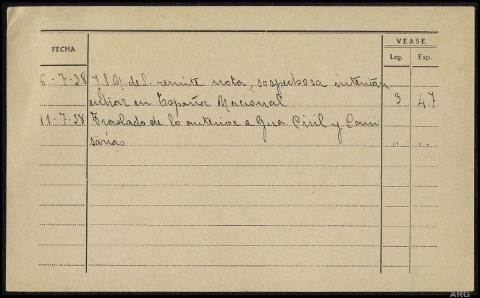 VEASE
FECHA Leg. Exp.
6-7-38 J.S.M. del. remite nota, sospechosa intentán
entrar en España Nacional 3 47
11-7-38 Traslado de lo anterior a Gua. Civil y Comi
sarías " "
ARG